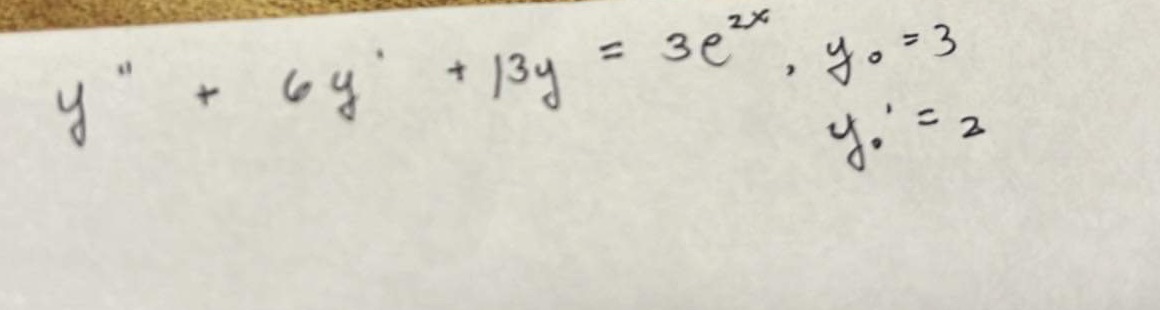 y" + 6y' + 13y = 3e^{2x}, y₀ = 3
y₀' = 2